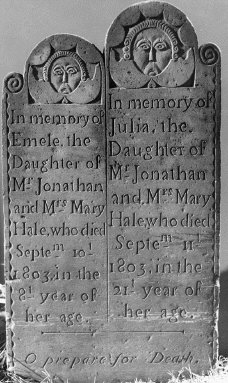 In memory of
Emele, the
Daughter of
Mr. Jonathan
and Mrs Mary
Hale, who died
Septem 10t
1803, in the
8t year of
her age.
In memory of
Julia, the
Daughter of
Mr. Jonathan
and, Mrs Mary
Hale, who died
Septem 11t
1803, in the
21t year of
her age.
O prepare for Death.